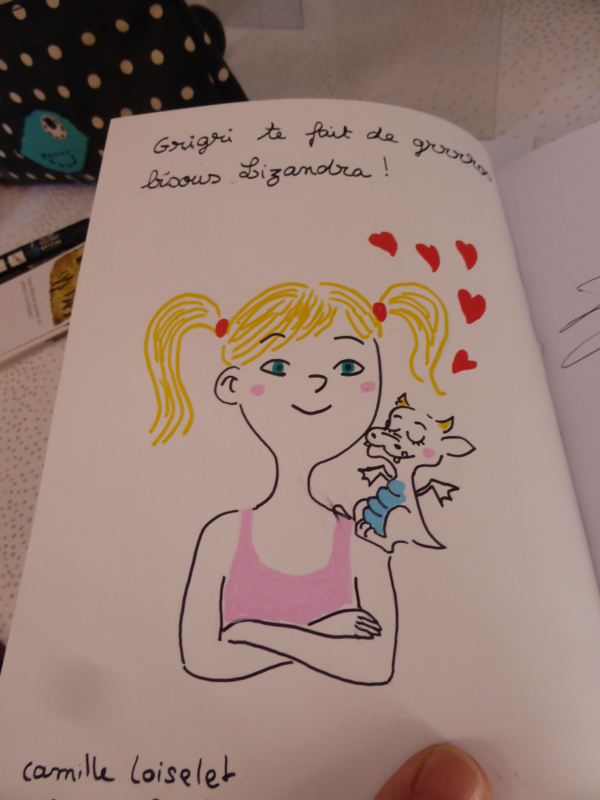 Grigri te fait de grrrros
bisous Lizandra !
camille Loiselet